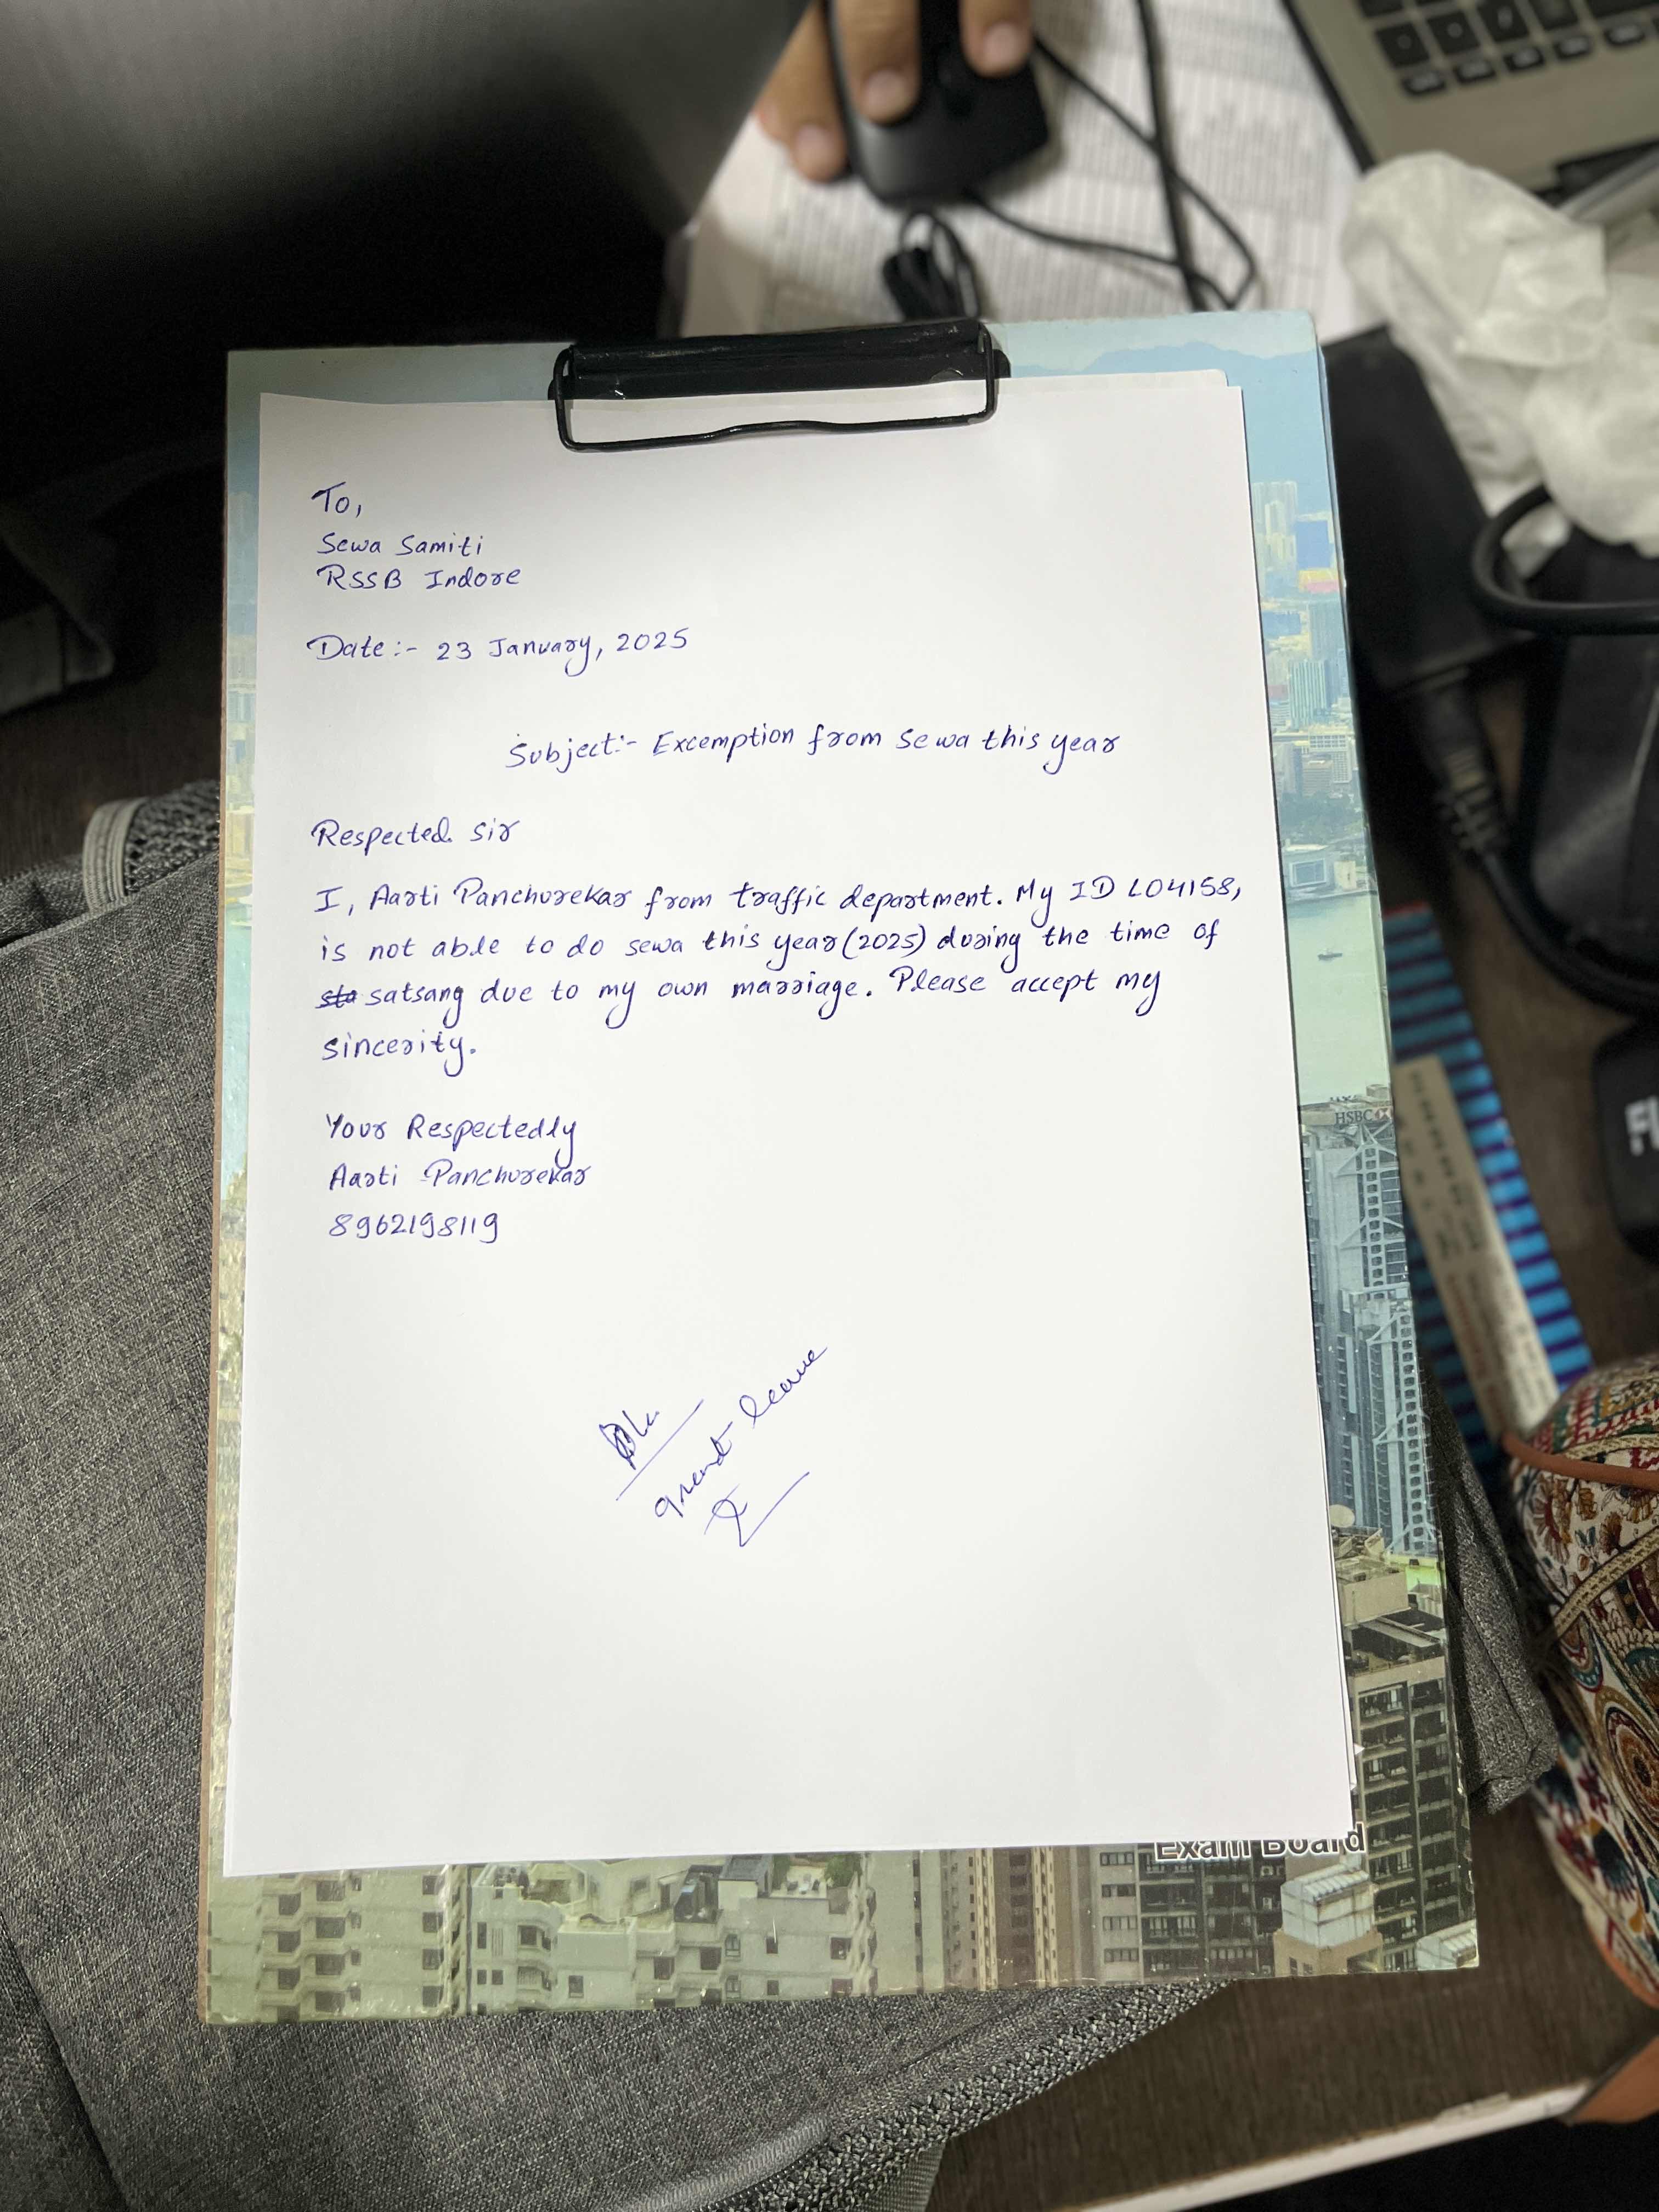 To,
Sewa Samiti
RSSB Indore
Date:- 23 January, 2025
Subject:- Excemption from Sewa this year
Respected Sir
I, Aarti Panchurekar from traffic department. My ID L04158,
is not able to do sewa this year (2025) during the time of
sta satsang due to my own marriage. Please accept my
sincerity.
Your Respectedly
Aarti Panchurekar
8962198119
grant leave
HSBC
Exam Board